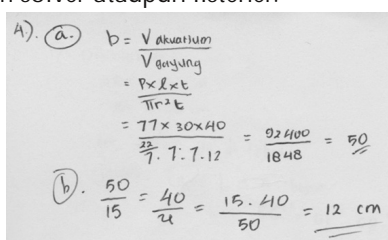 n solver ataupun listener.
4). a. b = V akuarium / V gayung
= P x l x t / πr²t
= 77 x 30 x 40 / 22/7 . 7 . 7 . 12 = 92400 / 1848 = 50
b. 50/15 = 40/u = 15 . 40 / 50 = 12 cm